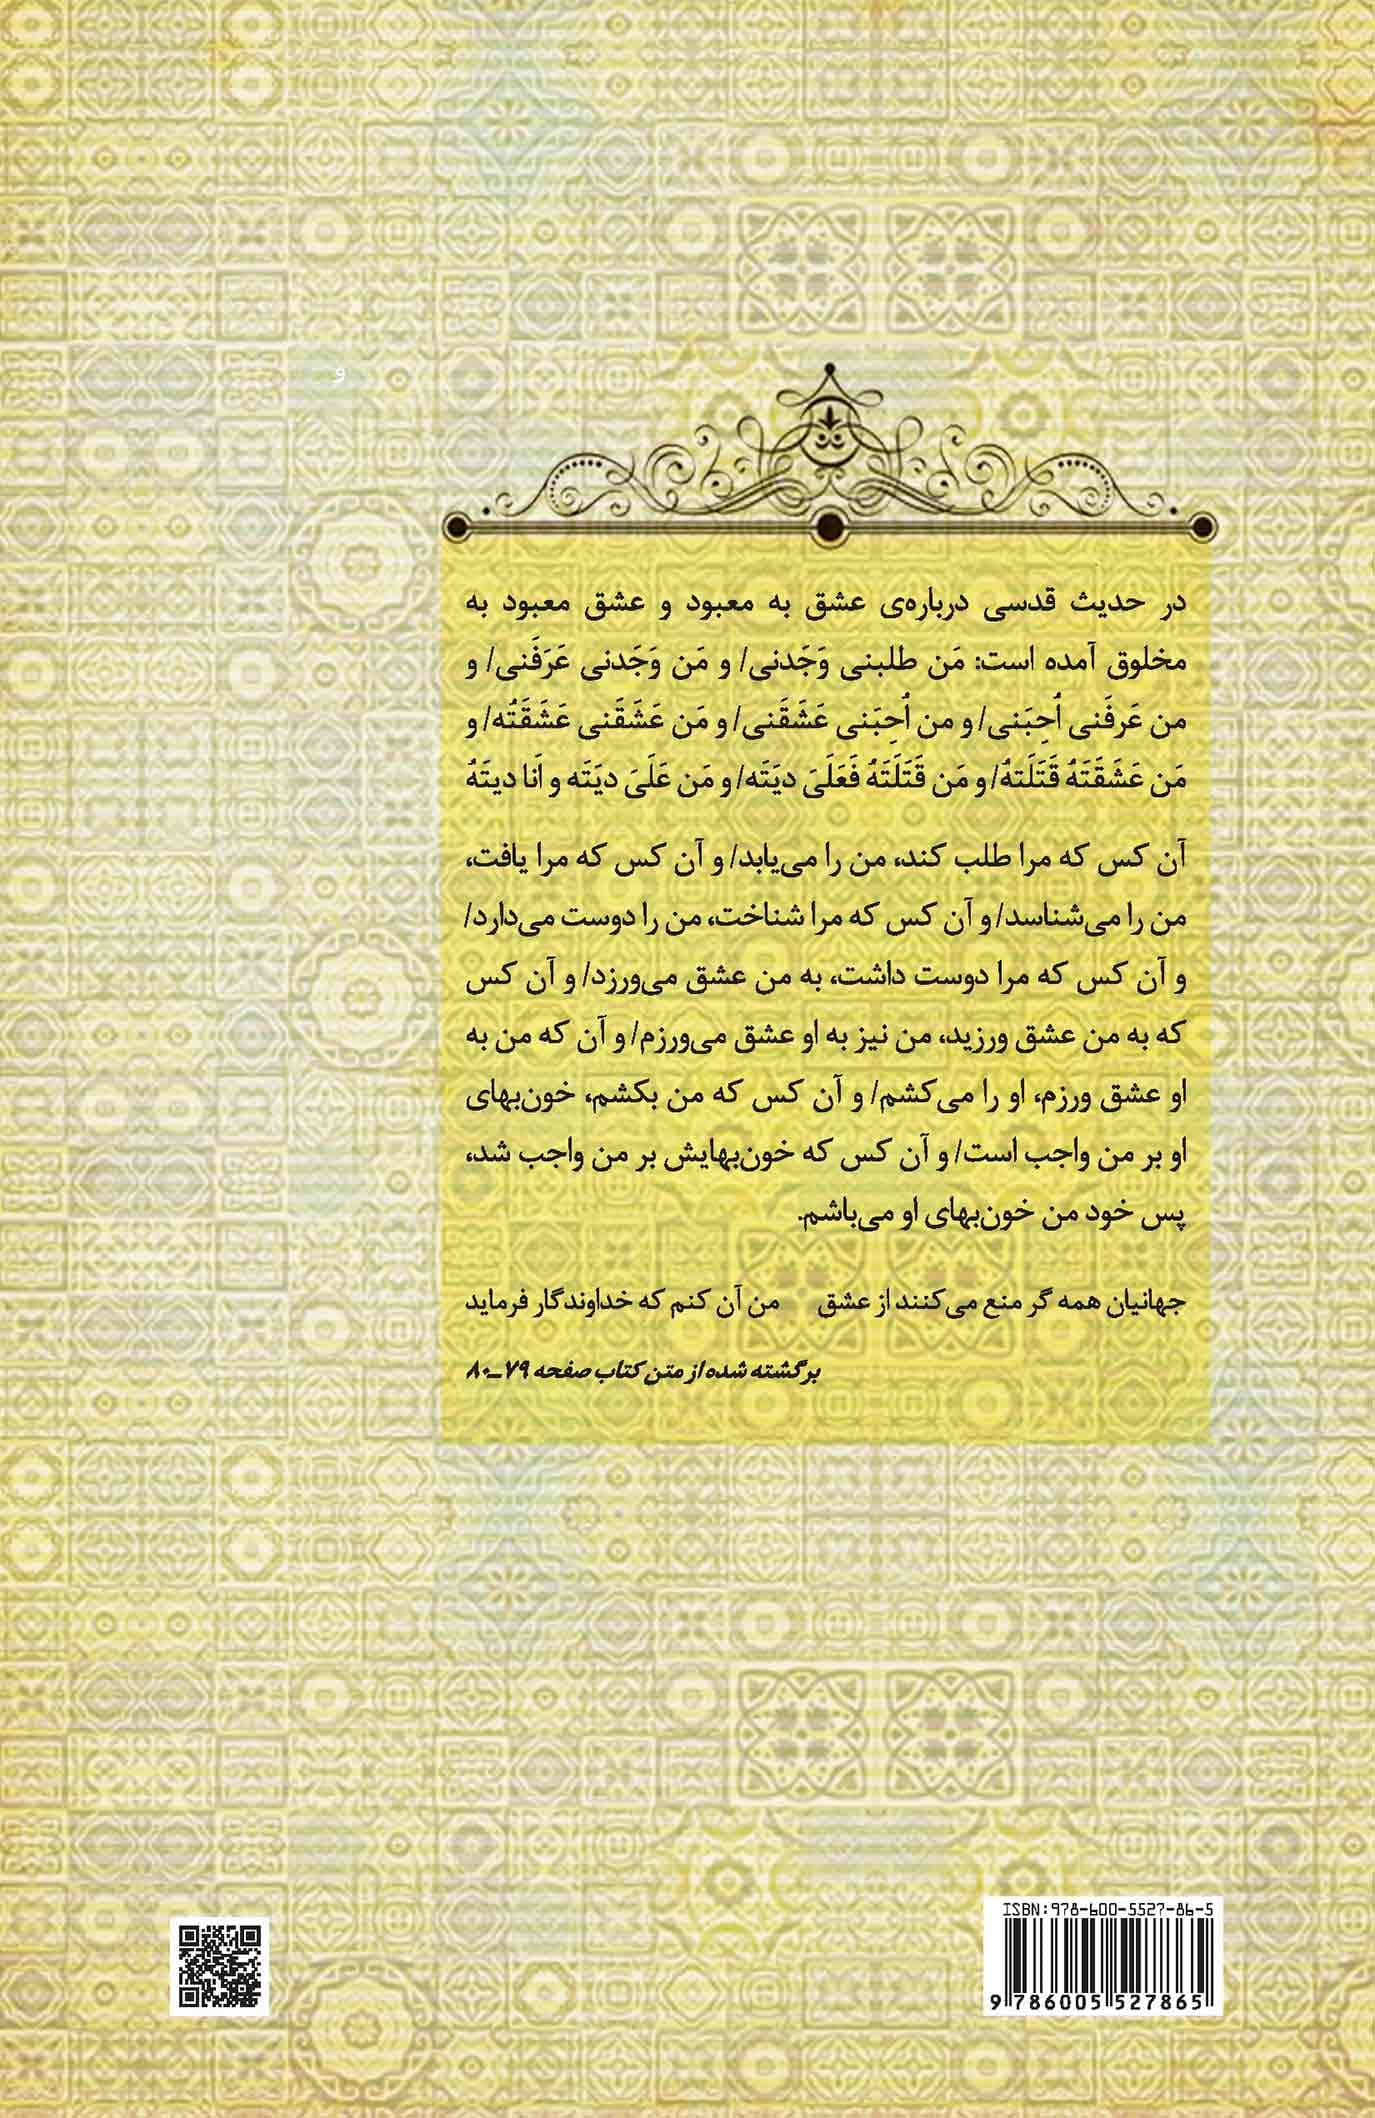 و
در حدیث قدسی درباره‌ی عشق به معبود و عشق معبود به
مخلوق آمده است: مَن طلبنی وَجَدنی/ و مَن وَجَدنی عَرَفَنی/ و
من عَرفَنی اُحِبَنی/ و من اُحِبَنی عَشَقَنی/ و مَن عَشَقَنی عَشَقَتُه/ و
مَن عَشَقَتَهُ قَتَلَتهُ/ و مَن قَتَلَتَهُ فَعَلَیَ دیَتَه/ و مَن عَلَیَ دیَتَه و اَنا دیتَهُ
آن کس که مرا طلب کند، من را می‌یابد/ و آن کس که مرا یافت،
من را می‌شناسد/ و آن کس که مرا شناخت، من را دوست می‌دارد/
و آن کس که مرا دوست داشت، به من عشق می‌ورزد/ و آن کس
که به من عشق ورزید، من نیز به او عشق می‌ورزم/ و آن که من به
او عشق ورزم، او را می‌کشم/ و آن کس که من بکشم، خون‌بهای
او بر من واجب است/ و آن کس که خون‌بهایش بر من واجب شد،
پس خود من خون‌بهای او می‌باشم.
جهانیان همه گر منع می‌کنند از عشق من آن کنم که خداوندگار فرماید
برگشته شده از متن کتاب صفحه ۷۹ـ۸۰
ISBN:978-600-5527-86-5
9 786005 527865